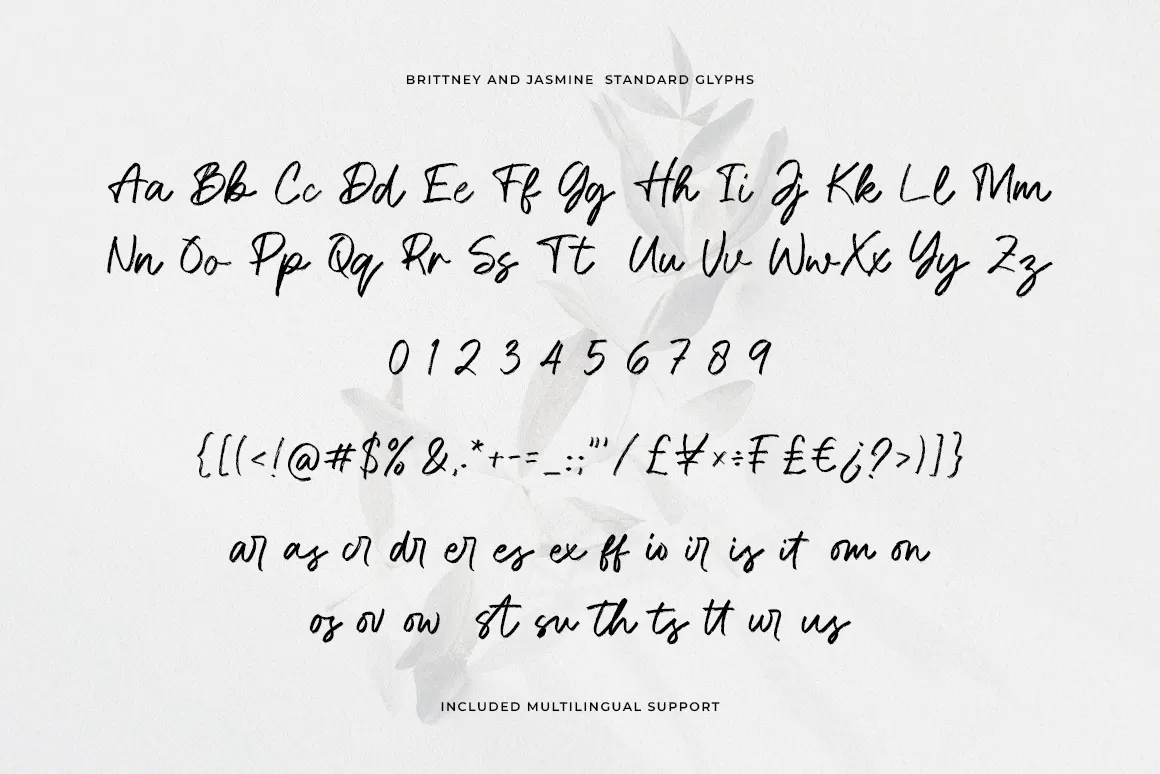 BRITTNEY AND JASMINE STANDARD GLYPHS
Aa Bb Cc Dd Ee Ff Gg Hh Ii Jj Kk Ll Mm
Nn Oo Pp Qq Rr Ss Tt Uu Vv Ww Xx Yy Zz
0 1 2 3 4 5 6 7 8 9
{[(<!@#$%&,.*+-=_:;"'/£¥×÷₣£€¿?>)]}
ar as cr dr er es ex ff io ir is it om on
os ov ow st su th ts tt ur us
INCLUDED MULTILINGUAL SUPPORT